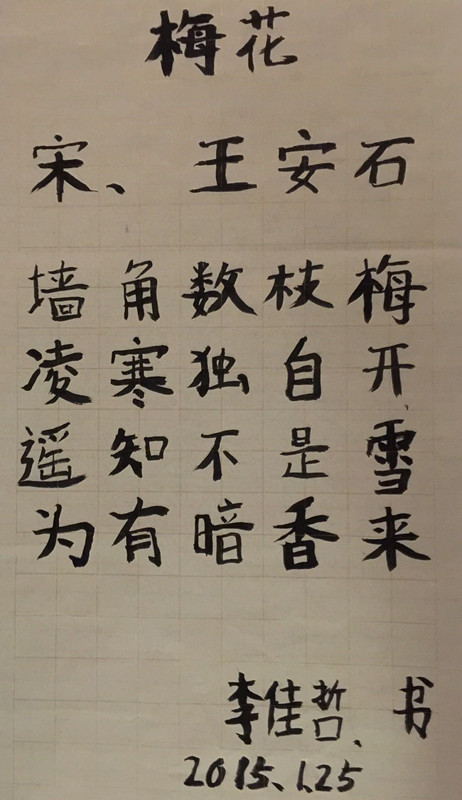 梅花
宋、王安石
墙角数枝梅
凌寒独自开
遥知不是雪
为有不暗香来
李佳哲、书
2015.1.25